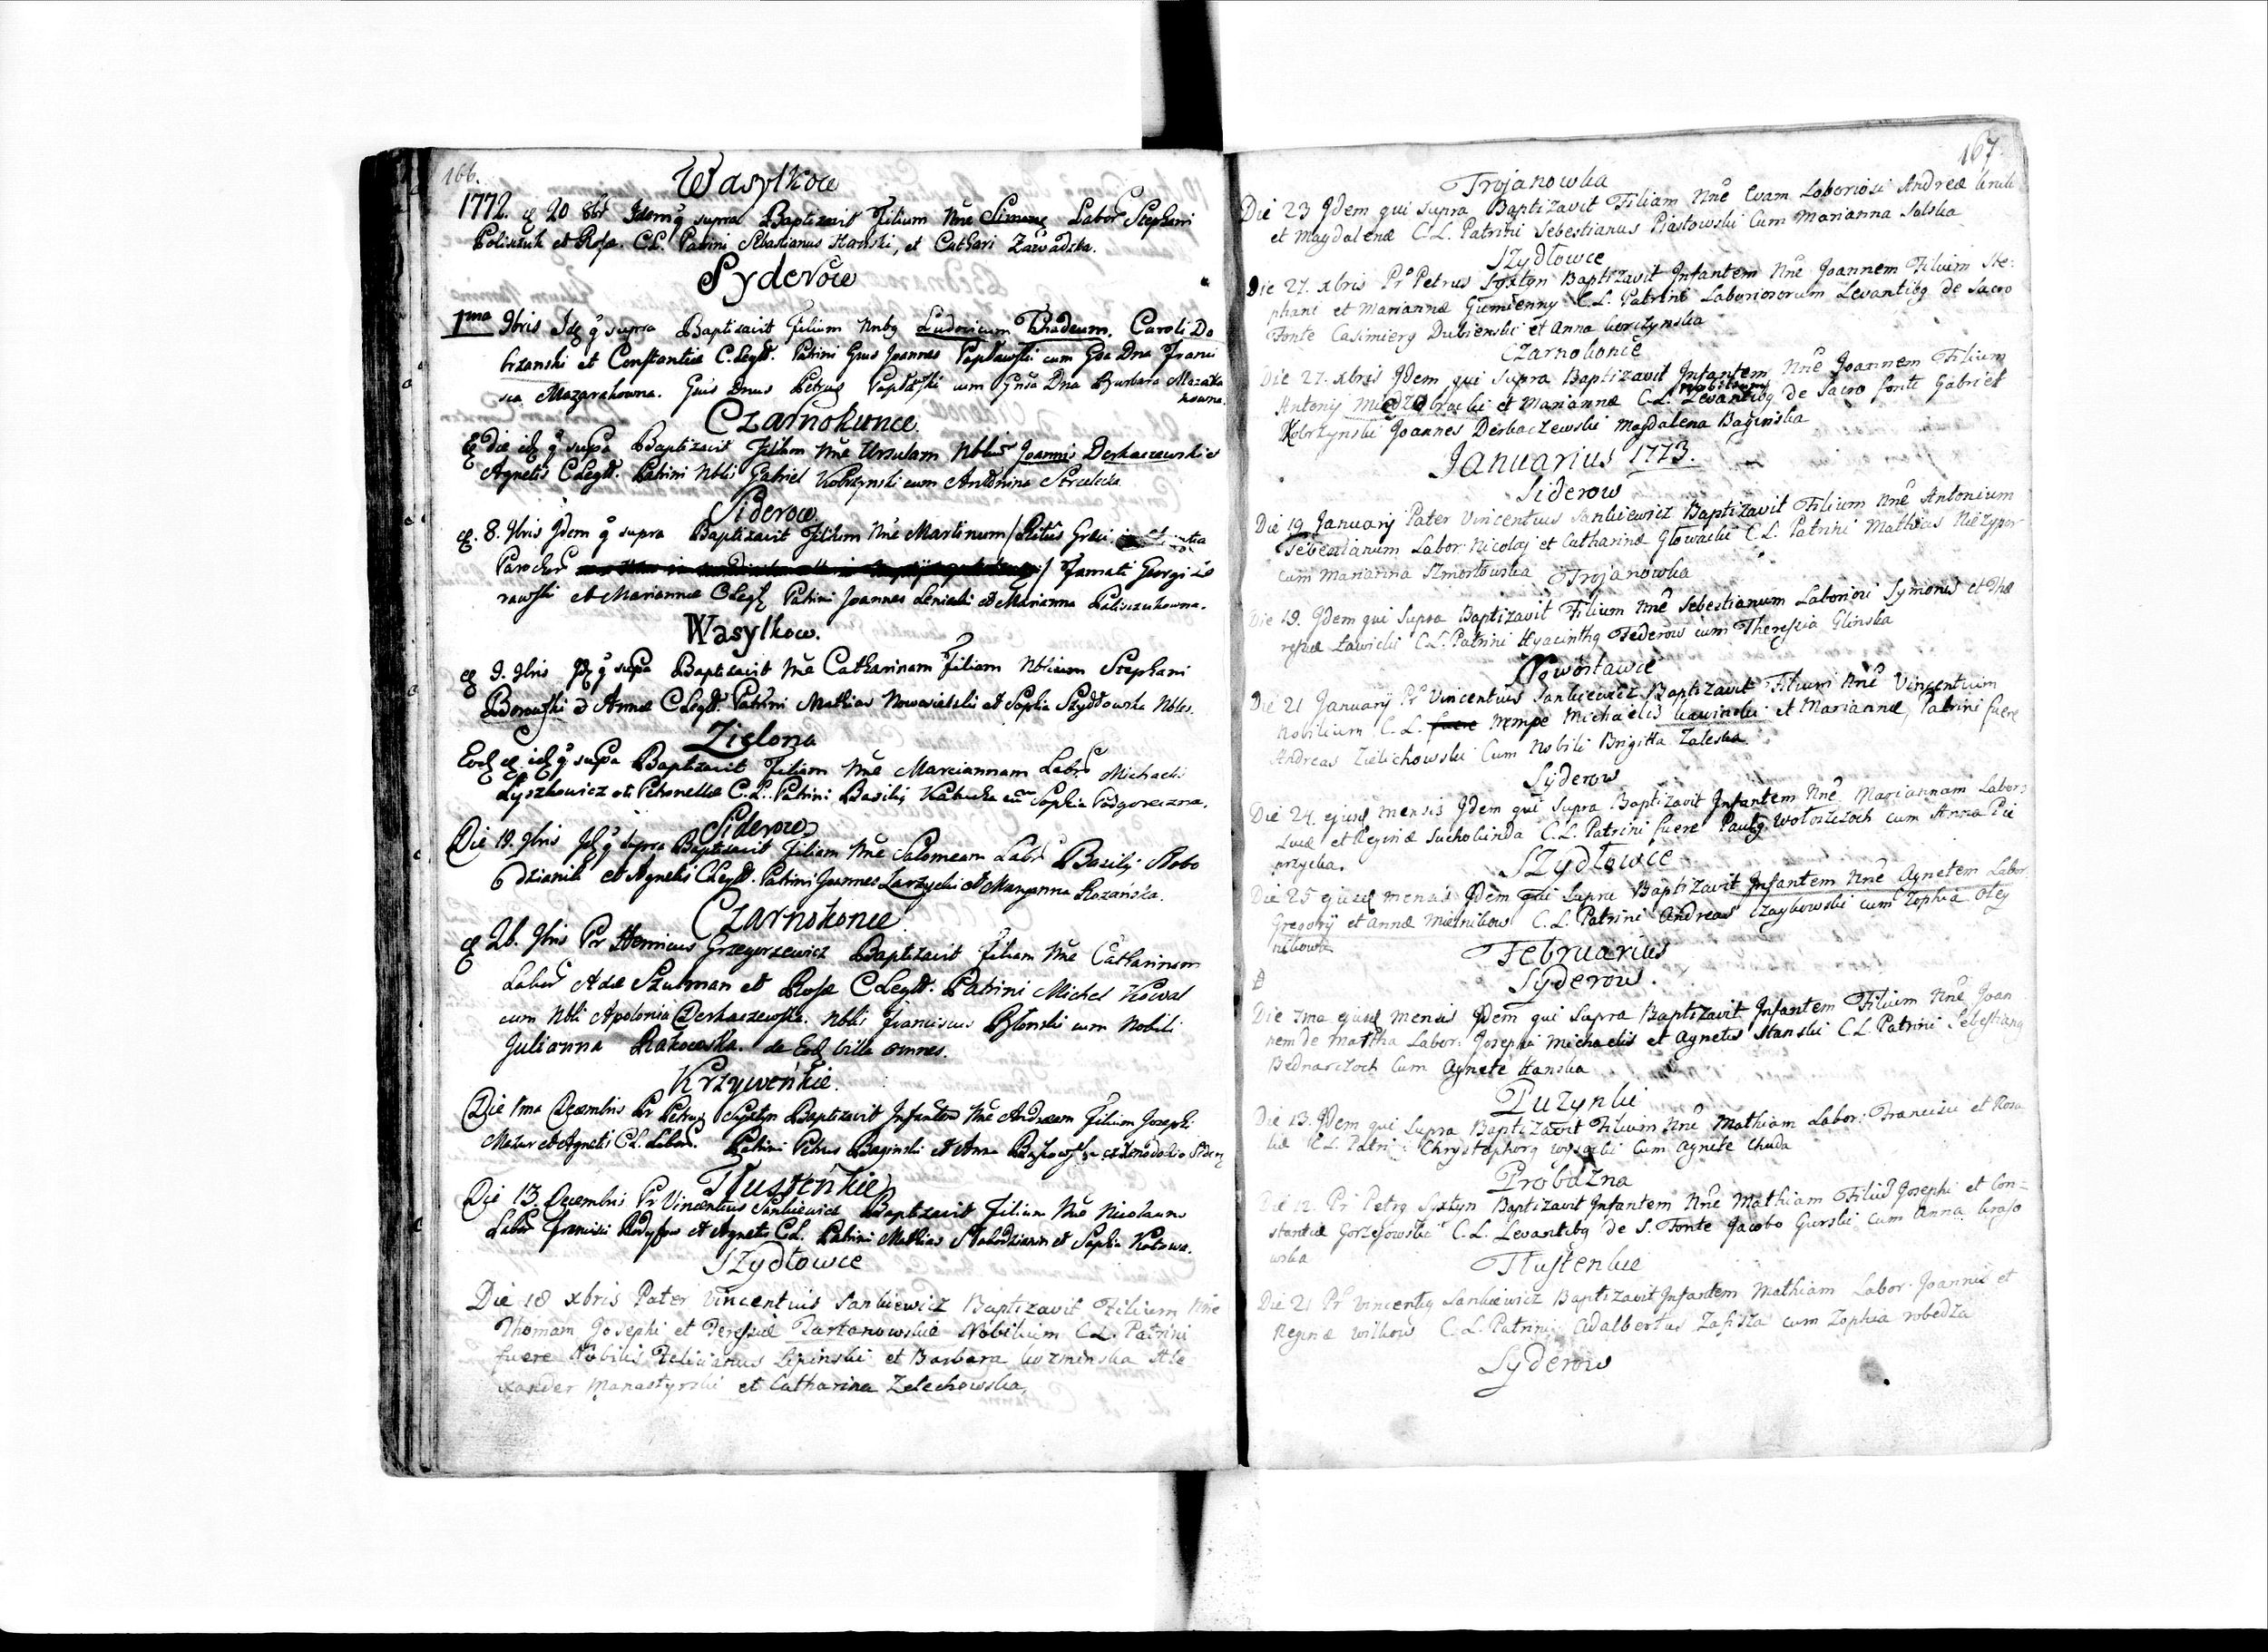 166.
Wasylkow
1772. 20 8br Idem q supra Baptizavit Filium Nne Simone Labor Stephani
Poliszuk et Rosae. C.L. Patrini Sebastianus Hanski, et Cathari Zawadzka.
Syderow
1ma 9bris Id q supra Baptizavit Filium Nnbq Ludovicum Thadeum. Caroli Do
brzanski et Constantiae C. Legtt. Patrini Gnus Joannes Popławski cum Gsa Dna Franci
sca Mazarakowna. Gnus Dnus Petrus Popławski cum Gnsa Dna Barbara Mazara
kowna.
Czarnokonce
die id q supa Baptizavit Filiam Nne Ursulam Nblium Joannis Derkaczewskie
Agnetis C Legtt. Patrini Nblis Gabriel Kobrzynski cum Antonina Strzelecka
Siderow
8. 9bris Idem q supra Baptizavit Filium Nne Martinum / Ritus Graeci
Parochus / Jamati Georgi
rawski et Mariannae C Leg Patrini Joannes Leniecki et Marianna Paliszukowna.
Wasylkow.
9. 9bris Id q supa Baptizavit Nne Catharinam Filiam Nblium Stephani
Borowski et Annae C Legtt. Patrini Mathias Nowosielski et Sophia Szydłowska Nbles.
Zielona
Eod id q supa Baptizavit Filiam Nne Mariannam Labr Michaelis
Łyszkowicz et Petronellae C.L. Patrini Basilij Kabucka cum Sophia Podgoreczna.
Siderow
Die 19. 9bris Id q supra Baptizavit Filiam Nne Salomeam Labr Basilij Robo
dzianik et Agnetis C Legtt. Patrini Joannes Zarzycki et Maryanna Rozańska.
Czarnokonce
26. 9bris Pr Henricus Grzegorzewicz Baptizavit Filiam Nne Catharinam
Labor Adae Szulman et Rosae C Legtt. Patrini Michel Kowal
cum Nbli Apolonia Derkaczewska. Nblis Franciscus Błonski cum Nobili
Julianna Rakowska. de Eod Villa omnes.
Krzyweńkie.
Die 1ma Decembris Pr Petrus Syxtyn Baptizavit Infantem Nne Andream Filium Josephi
Mazur et Agnetis C.L. Labor. Patrini Petrus Baginski et Anna
Tłusteńkie
Die 13 Decembris Pr Vincentius Sankiewicz Baptizavit Filium Nne Nicolaum
Labor Francisci et Agnetis C.L. Patrini Mathias Słobodzianin et Sophia Kotowa.
Szydłowce
Die 18 xbris Pater Vincentius Sankiewicz Baptizavit Filium Nne
Thomam Josephi et Teresiae Tartanowskie Nobilium C.L. Patrini
fuere Nobilis Felicianus Lipinski et Barbara Kozminska Ale
xander Manastyrski et Catharina Zelechowska,
167
Trojanowka
Die 23 Idem qui supra Baptizavit Filiam Nne Evam Laboriosi Andreae
et Magdalenae C.L. Patrini Sebestianus Piastowski Cum Marianna Salska
Szydłowce
Die 27. xbris Pr Petrus Syxtyn Baptizavit Infantem Nne Joannem Filium Ste:
phani et Mariannae Gumienny C.L. Patrini Laboriosorum Levantibq de Sacro
Fonte Casimierq Dubienski et Anna Gorczynska
Czarnokonce
Die 27. xbris Idem qui Supra Baptizavit Infantem Nne Joannem Filium
nobilium
Antonij Miedzobrocki et Mariannae C.L. Levantibq de Sacro fonte Gabriel
Kobrzynski Joannes Derkaczewski Magdalena Baginska
Januarius 1773.
Siderow
Die 19 January Pater Vincentius Sankiewicz Baptizavit Filium Nne Antonium
Sebestianum Labor: Nicolaj et Catharinae Głowacki C.L. Patrini Mathias Niezypor
cum Marianna Szmorłowska Trojanowka
Die 19. Idem qui Supra Baptizavit Filium Nne Sebestianum Laboriosi Symonis et The
resiae Ławicki C.L. Patrini Hyacinthq Federow cum Theressia Glinska
Nowostawce
Die 21 January Pr Vincentius Sankiewicz Baptizavit Filium Nne Vincentium
Nobilium C.L. fuere nempe Michaelis Kawinski et Mariannae, Patrini fuere
Andreas Zielichowski Cum Nobili Brigitta Zaleska
Syderow
Die 24. ejusd mensis Idem qui Supra Baptizavit Infantem Nne Mariannam Labor:
Lucae et Reginae Sucholinda C.L. Patrini fuere Paulq Wołoszczoch cum Anna Pie
przycka.
Szydłowce
Die 25 ejusd mensis Idem qui Supra Baptizavit Infantem Nne Agnetem Labor:
Gregorij et Annae Mielnikow C.L. Patrini Andreas Czaykowski cum Zophia Oley
nikowa
Februarius
Syderow.
Die 7ma ejusd mensis Idem qui Supra Baptizavit Infantem Filium Nne Joan
nem de Mattha Labor: Josephi Michaelis et Agnetis Stanski C.L. Patrini Sebestianq
Bednarczoch Cum Agnete Hanska
Puzynki
Die 13. Idem qui Supra Baptizavit Filium Nne Mathiam Labor: Francisci et Rosa
liae C.L. Patrini Chrystophorq Wysocki Cum Agnete Chuda
Probuzna
Die 12. Pr Petrq Syxtyn Baptizavit Infantem Nne Mathiam Filiu Josephi et Con=
stantiae Gorzejowskie C.L. Levantibq de S. Fonte Jacobo Gurski cum Anna Kraso
wska
Tłustenkie
Die 21 Pr Vincentiq Sankiewicz Baptizavit Infantem Mathiam Labor: Joannis et
Reginae Wilkow C.L. Patrini Adalbertus Zasista cum Zophia robedza
Syderow